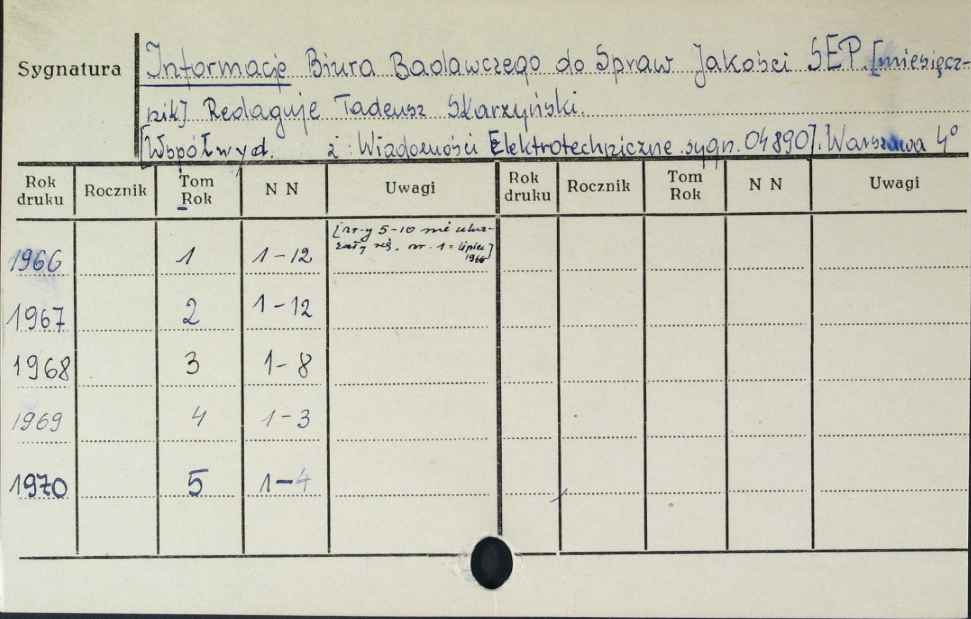 Sygnatura
Informacje Biura Badawczego do Spraw Jakości SEP. [miesięcz-
nik] Redaguje Tadeusz Skarzyński.
[Współwyd. z: Wiadomości Elektrotechniczne. sygn. 04890]. Warszawa 4°
Rok druku Rocznik Tom Rok N N Uwagi Rok druku Rocznik Tom Rok N N Uwagi
[nr-y 5-10 nie uka-
zały się. nr. 1 = lipiec]
1966
1966 1 1-12
1967 2 1-12
1968 3 1-8
1969 4 1-3
1970 5 1-4